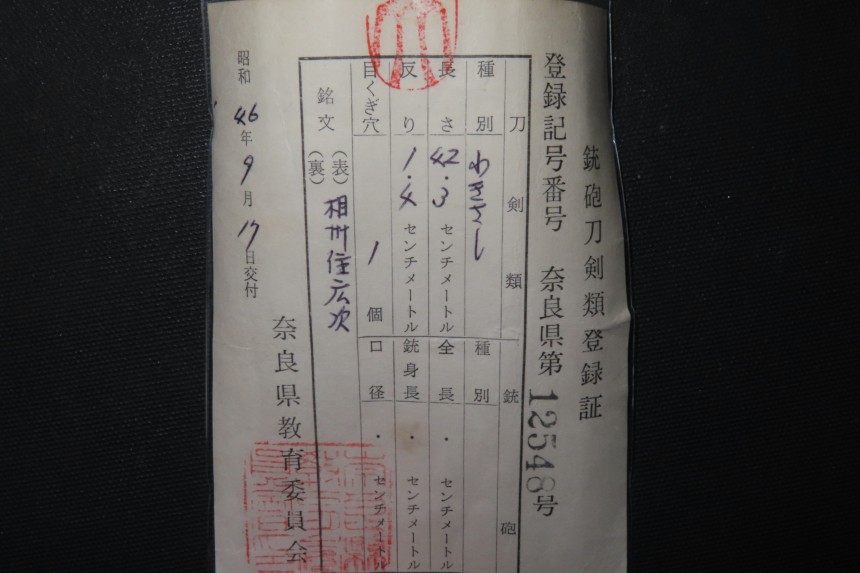 銃砲刀剣類登録証
登録記号番号 奈良県第12548号
刀剣類 銃砲
種別 わきざし 種別
長さ 42.3 センチメートル 全長 ・ センチメートル
反り 1.4 センチメートル 銃身長 ・ センチメートル
目くぎ穴 1 個 口径 ・ センチメートル
銘文 (表) 相州住広次
(裏)
奈良県教育委員会
昭和46年9月17日交付